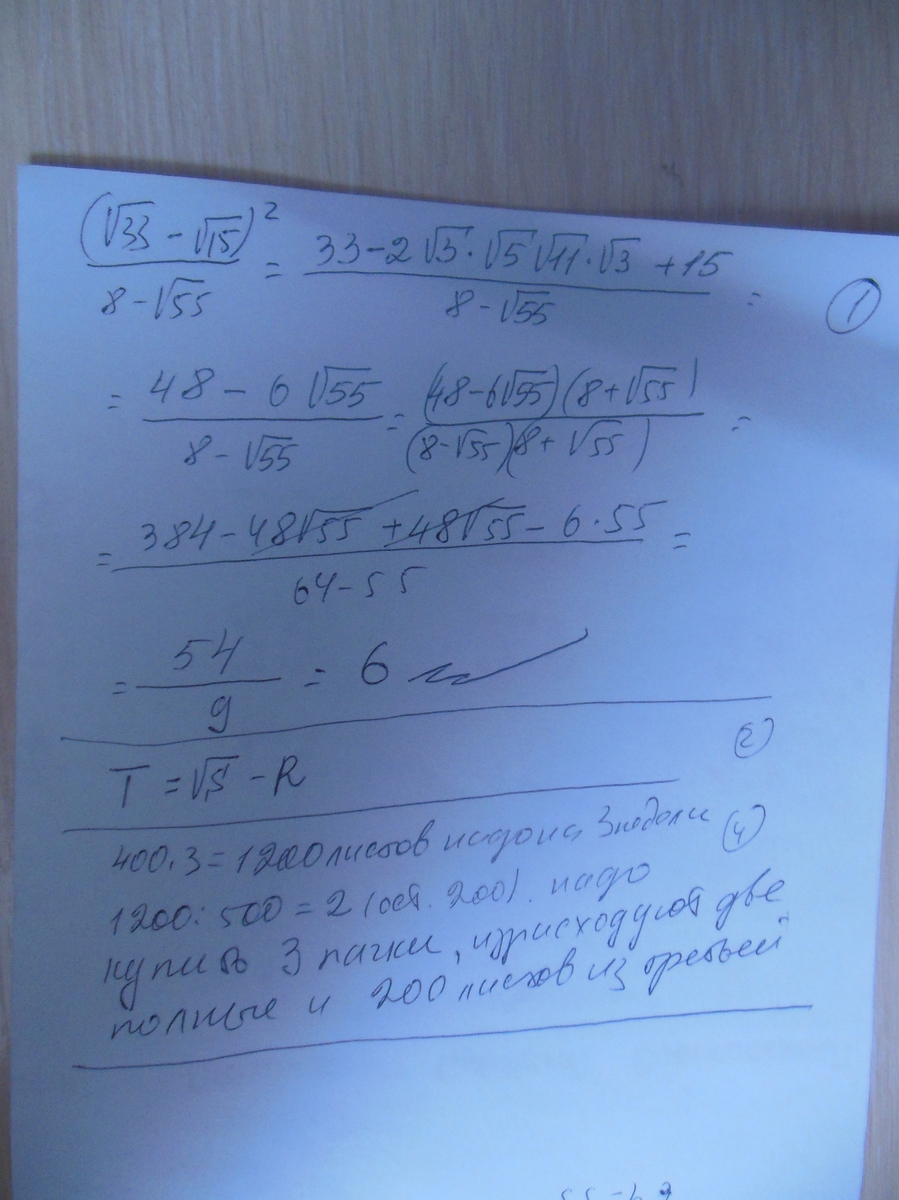 (√33 - √15)² / (8 - √55) = (33 - 2√3·√5√11·√3 + 15) / (8 - √55) = ①
= (48 - 6√55) / (8 - √55) = (48 - 6√55)(8 + √55) / (8 - √55)(8 + √55) =
= (384 - 48√55 + 48√55 - 6·55) / (64 - 55) =
= 54 / 9 = 6
②
T = √S - R
400·3 = 1200 листов надо на 3 недели ④
1200 : 500 = 2 (ост. 200). надо
купить 3 пачки, израсходуют две
полные и 200 листов из третьей